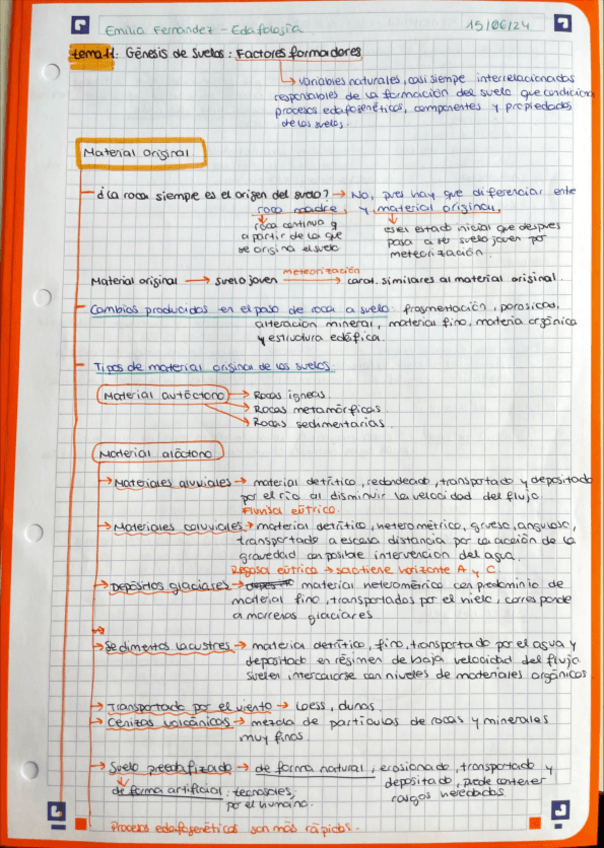 Emilia Fernandez - Edafología 15/06/24
tema 11: Génesis de suelos: Factores formadores
variables naturales, casi siempre interrelacionadas
responsables de la formación del suelo que condicionan
procesos edafogenéticos, componentes y propiedades
de los suelos.
Material original
¿La roca siempre es el origen del suelo? → No, pues hay que diferenciar ente
roca madre, y material original,
roca continua y
a partir de la que
se origina el suelo
es el estado inicial que despues
pasa a ser suelo joven por
meteorización.
Material original → suelo joven meteorización → carat. similares al material original.
Cambios producidos en el paso de roca a suelo: fragmentación, porosidad,
alteración mineral, material fino, materia orgánica
y estructura edáfica.
Tipos de material original de los suelos
Material autóctono → Rocas igneas
→ Rocas metamórficas
→ Rocas sedimentarias
Material alóctono
→ Materiales aluviales → material detrítico, redondeado, transportado y depositado
por el río al disminuir la velocidad del flujo
Fluvisol eútrico.
→ Materiales coluviales → material detrítico, heterométrico, grueso, anguloso,
transportado a escasa distancia por la acción de la
gravedad con posible intervencion del agua.
Regosol eútrico → solo tiene horizonte A y C.
→ Depósitos glaciares → material heterométrico con predominio de
material fino, transportados por el hielo, corresponde
a morrenas glaciares
→ Sedimentos lacustres → material detrítico, fino, transportado por el agua y
depositado en régimen de baja velocidad del flujo
suelen intercalarse con niveles de materiales orgánicos
→ Transportado por el viento → loess, dunas
→ Cenizas volcánicas → mezcla de partículas de rocas y minerales
muy finos
→ Suelo preedafizado → de forma natural, erosionado, transportado y
depositado, puede contener
rasgos heredados
de forma artificial: tecnosoles,
por el humano.
Procesos edafogenéticos son más rápidos.